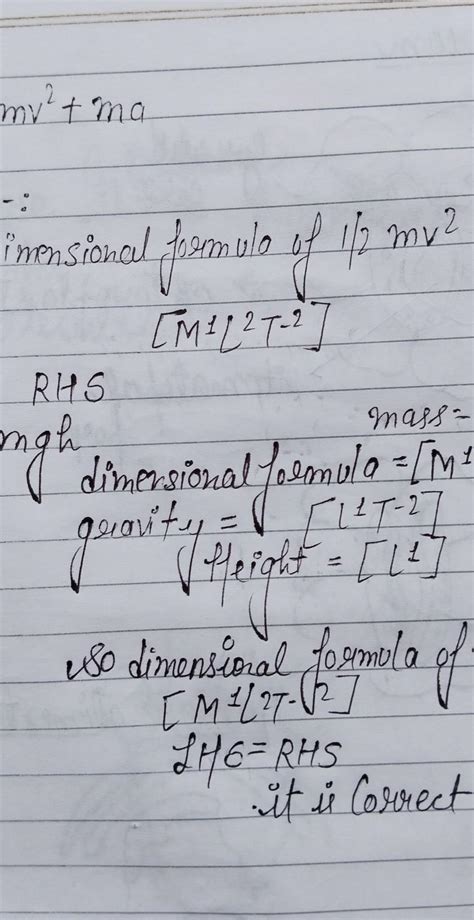 mv² + ma
-:
imensional formula of 1/2 mv²
[M¹L²T-²]
RHS
mgh mass =
dimensional formula = [M¹
gravity = [L¹T-²]
Height = [L¹]
so dimensional formula of
[M¹L²T-²]
LHS = RHS
.it is Correct